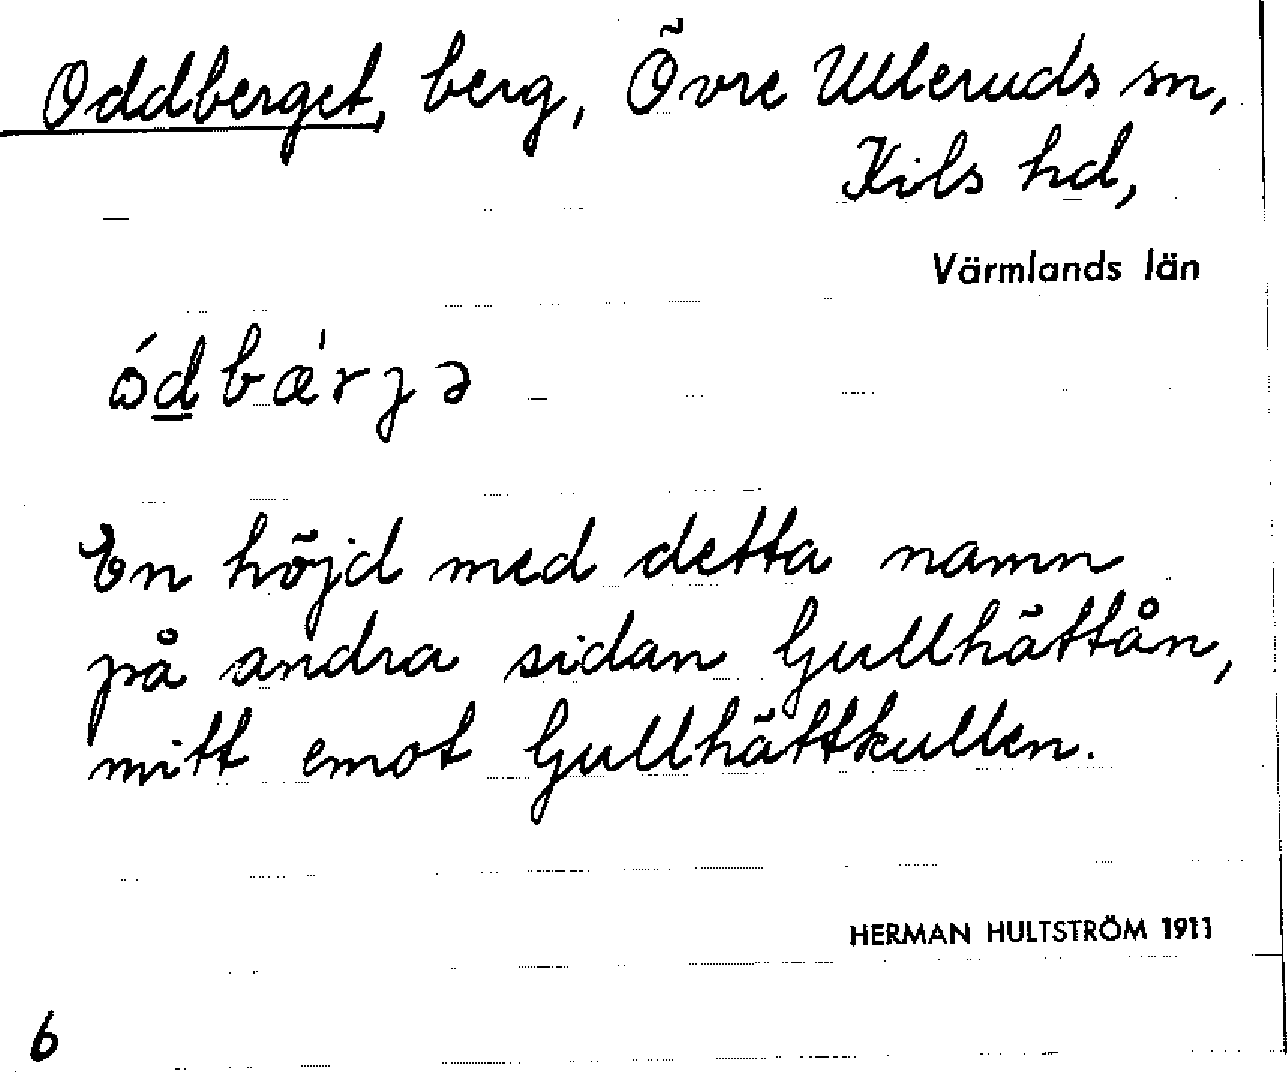 Oddberget, berg, Övre Ulleruds sn,
Kils hd,
Värmlands län
ɷ́dbæ̀rjə
En höjd med detta namn
på andra sidan Gullhättån,
mitt emot Gullhättkullen.
HERMAN HULTSTRÖM 1911
6